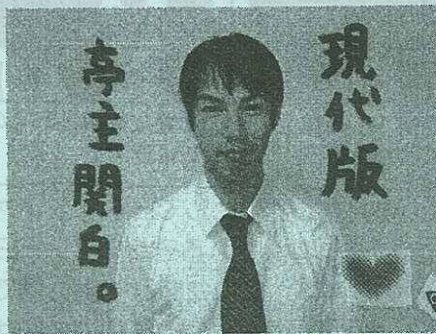 現代版
亭主関白。